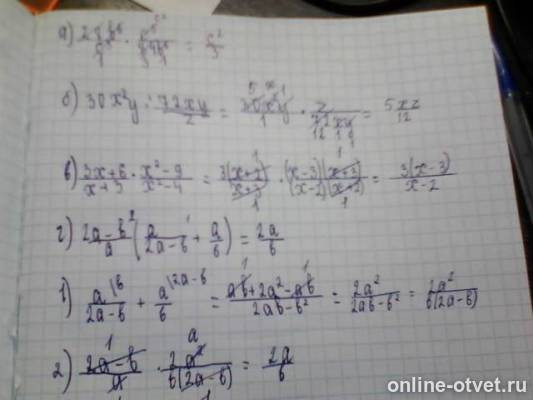 б) 30x²y : 72xy/z = 30x²y/1 · z/72xy = 5xz/12
в) 3x+6/x+3 · x²-9/x²-4 = 3(x+2)/x+3 · (x-3)(x+3)/(x-2)(x+2) = 3(x-3)/x-2
г) 2a-b/a (a/2a-b + a/b) = 2a/b
1) a/2a-b + a/b = ab+2a²-ab/2ab-b² = 2a²/2ab-b² = 2a²/b(2a-b)
2) 2a-b/a · 2a²/b(2a-b) = 2a/b
online-otvet.ru